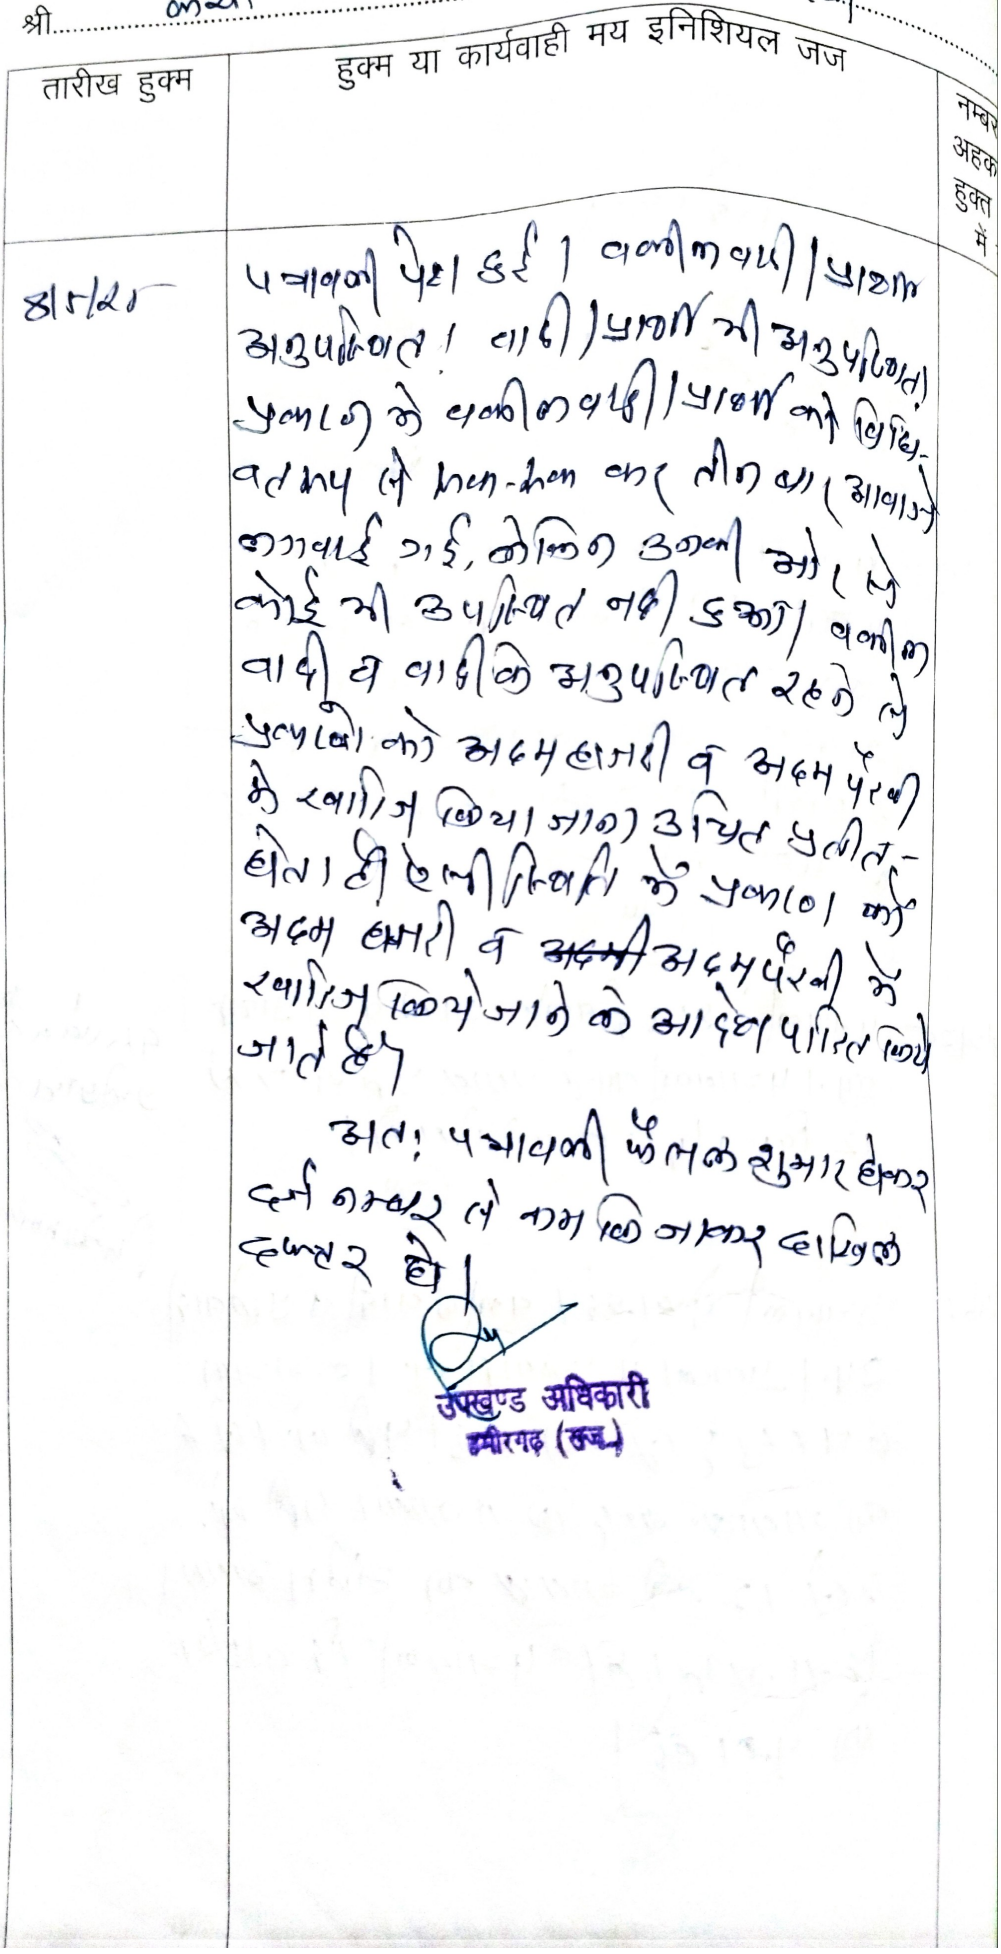 श्री
तारीख हुक्म
हुक्म या कार्यवाही मय इनिशियल जज
नम्बर
अहक
हुक्त
में
8/5/25
पत्रावली पेश हुई । वकील वादी/प्रार्थी
अनुपस्थित। वादी/प्रार्थी भी अनुपस्थित।
प्रकरण मे वकील वादी/प्रार्थी को विधि-
वत रूप से रूक-रूक कर तीन बार आवाजे
लगवाई गई, लेकिन उनकी ओर से
कोई भी उपस्थित नही हुआ। वकील
वादी व वादी के अनुपस्थित रहने से
प्रकरण को अदम हाजरी व अदम पैरवी
मे खारिज किया जाना उचित प्रतीत-
होता है। ऐसी स्थिति में प्रकरण को
अदम हाजरी व अदम पैरवी में
खारिज किये जाने के आदेश पारित किये
जाते है।
अतः पत्रावली फैसल शुमार होकर
दर्ज नम्बर से कम कि जाकर दाखिल
दफ्तर हो।
उपखण्ड अधिकारी
हमीरगढ़ (राज.)